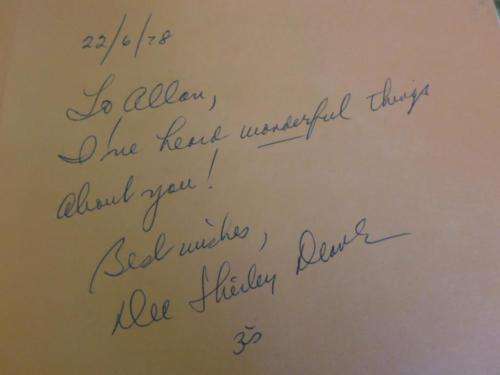 22/6/78
To Allan,
I've heard wonderful things
about you!
Best wishes,
Dee Shirley Deane
ॐ